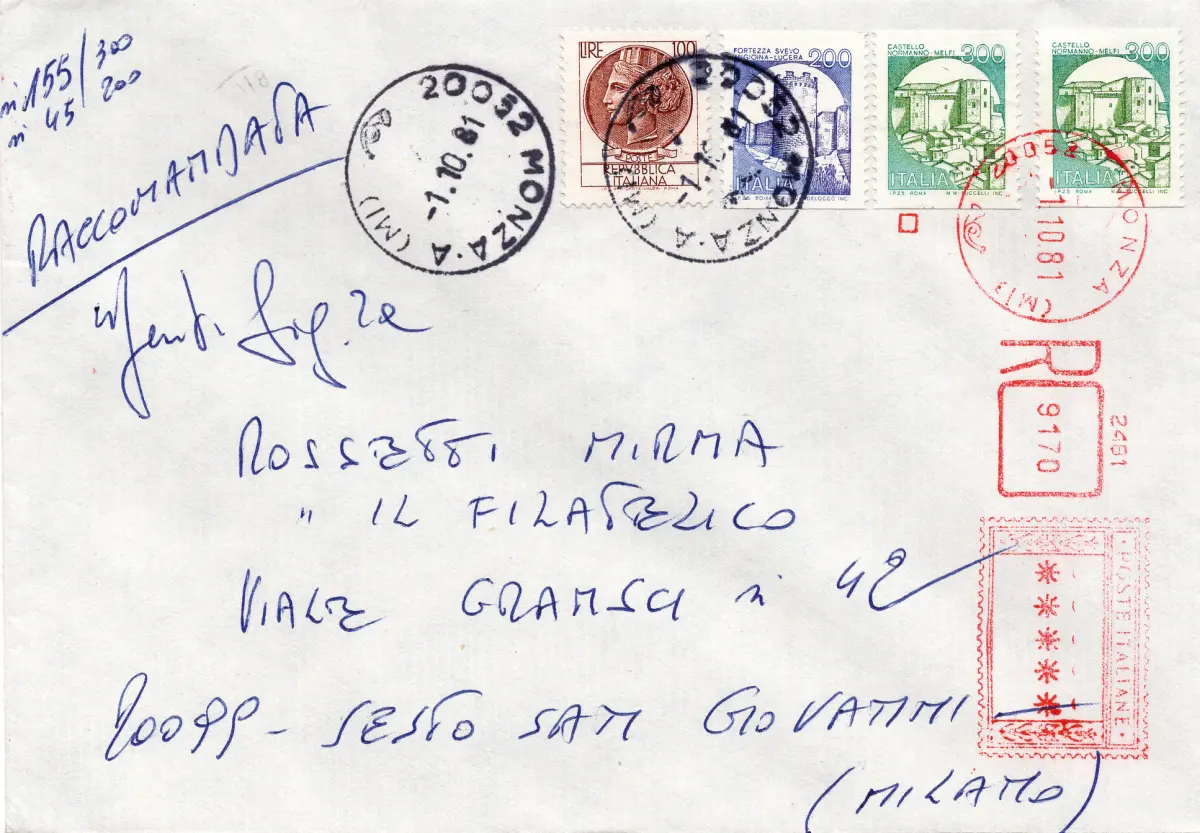 n 155/300
n 45 200
RACCOMANDATA
20052 MONZA·A (MI)
-1.10.81
LIRE 100
POSTE
REPVBBLICA
ITALIANA
FORTEZZA SVEVO
ANGIOINA-LUCERA 200
ITALIA
I.P.Z.S. ROMA
CASTELLO
NORMANNO-MELFI 300
ITALIA
I.P.Z.S. ROMA M.M. TUCCELLI INC.
CASTELLO
NORMANNO-MELFI 300
ITALIA
I.P.Z.S. ROMA M.M. TUCCELLI INC.
20052 MONZA·A (MI)
-1.10.81
20052 MONZA (MI)
1.10.81
R
9170
2491
Gent. Sig.ra
ROSSETTI MIRMA
" IL FILATELICO
VIALE GRAMSCI n 42
20099 - SESTO SAN GIOVANNI
(MILANO)
POSTE ITALIANE
*****